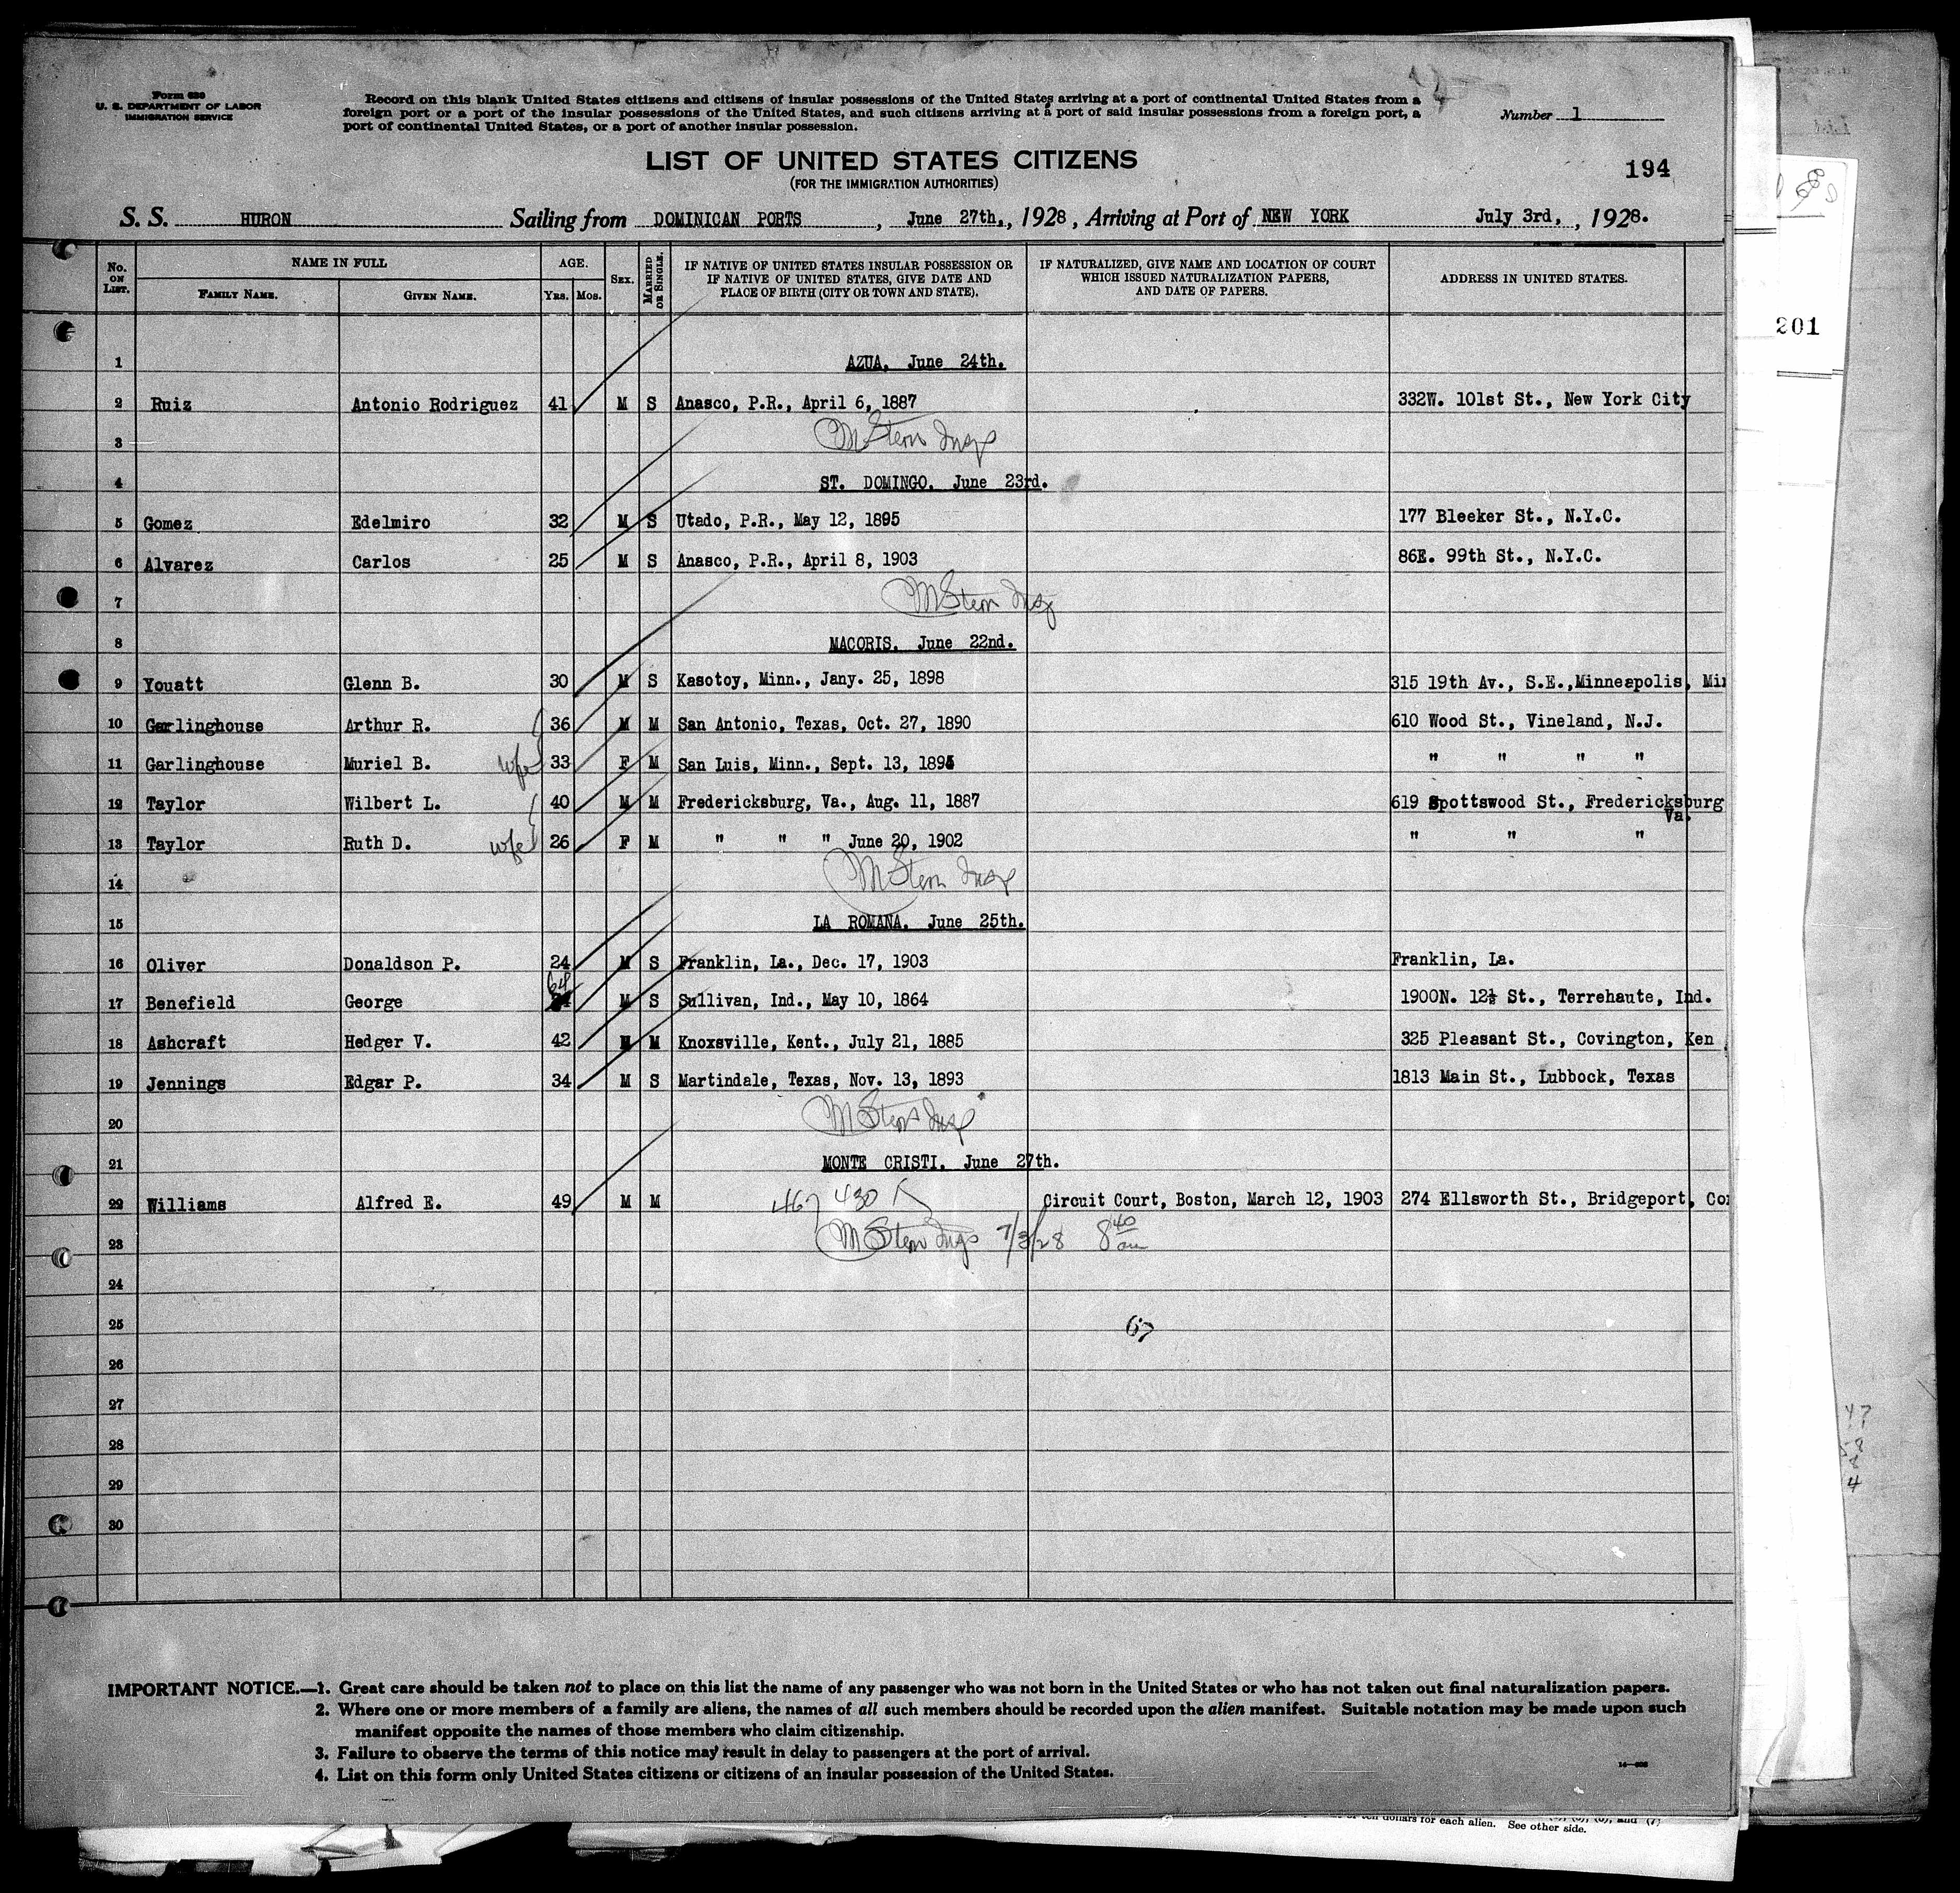 Form 630
U. S. DEPARTMENT OF LABOR
IMMIGRATION SERVICE
Record on this blank United States citizens and citizens of insular possessions of the United States arriving at a port of continental United States from a
foreign port or a port of the insular possessions of the United States, and such citizens arriving at a port of said insular possessions from a foreign port, a
port of continental United States, or a port of another insular possession.
Number 1
LIST OF UNITED STATES CITIZENS
(FOR THE IMMIGRATION AUTHORITIES)
194
S. S. HURON Sailing from DOMINICAN PORTS, June 27th, 1928, Arriving at Port of NEW YORK July 3rd, 1928.
No. ON LIST.
NAME IN FULL
FAMILY NAME.
GIVEN NAME.
AGE.
YRS.
MOS.
SEX.
MARRIED OR SINGLE.
IF NATIVE OF UNITED STATES INSULAR POSSESSION OR
IF NATIVE OF UNITED STATES, GIVE DATE AND
PLACE OF BIRTH (CITY OR TOWN AND STATE).
IF NATURALIZED, GIVE NAME AND LOCATION OF COURT
WHICH ISSUED NATURALIZATION PAPERS,
AND DATE OF PAPERS.
ADDRESS IN UNITED STATES.
201
1 AZUA. June 24th.
2 Ruiz Antonio Rodriguez 41 M S Anasco, P.R., April 6, 1887 332W. 101st St., New York City
3 M Stern Insp
4 ST. DOMINGO. June 23rd.
5 Gomez Edelmiro 32 M S Utado, P.R., May 12, 1895 177 Bleeker St., N.Y.C.
6 Alvarez Carlos 25 M S Anasco, P.R., April 8, 1903 86E. 99th St., N.Y.C.
7 M Stern Insp
8 MACORIS. June 22nd.
9 Youatt Glenn B. 30 M S Kasotoy, Minn., Jany. 25, 1898 315 19th Av., S.E.,Minneapolis, Min
10 Garlinghouse Arthur R. 36 M M San Antonio, Texas, Oct. 27, 1890 610 Wood St., Vineland, N.J.
11 Garlinghouse Muriel B. wife 33 F M San Luis, Minn., Sept. 13, 1895 " " " "
12 Taylor Wilbert L. 40 M M Fredericksburg, Va., Aug. 11, 1887 619 Spottswood St., Fredericksburg
Va.
13 Taylor Ruth D. wife 26 F M " " " June 20, 1902 " " "
14 M Stern Insp
15 LA ROMANA. June 25th.
16 Oliver Donaldson P. 24 M S Franklin, La., Dec. 17, 1903 Franklin, La.
17 Benefield George 64 M S Sullivan, Ind., May 10, 1864 1900N. 12½ St., Terrehaute, Ind.
18 Ashcraft Hedger V. 42 M M Knoxsville, Kent., July 21, 1885 325 Pleasant St., Covington, Ken
19 Jennings Edgar P. 34 M S Martindale, Texas, Nov. 13, 1893 1813 Main St., Lubbock, Texas
20 M Stern Insp
21 MONTE CRISTI. June 27th.
22 Williams Alfred E. 49 M M 467 430 Circuit Court, Boston, March 12, 1903 274 Ellsworth St., Bridgeport, Con
23 M Stern Insp 7/3/28 8 40 am
24
25 67
26
27
28
29
30
IMPORTANT NOTICE.—1. Great care should be taken not to place on this list the name of any passenger who was not born in the United States or who has not taken out final naturalization papers.
2. Where one or more members of a family are aliens, the names of all such members should be recorded upon the alien manifest. Suitable notation may be made upon such
manifest opposite the names of those members who claim citizenship.
3. Failure to observe the terms of this notice may result in delay to passengers at the port of arrival.
4. List on this form only United States citizens or citizens of an insular possession of the United States.
ten dollars for each alien. See other side.